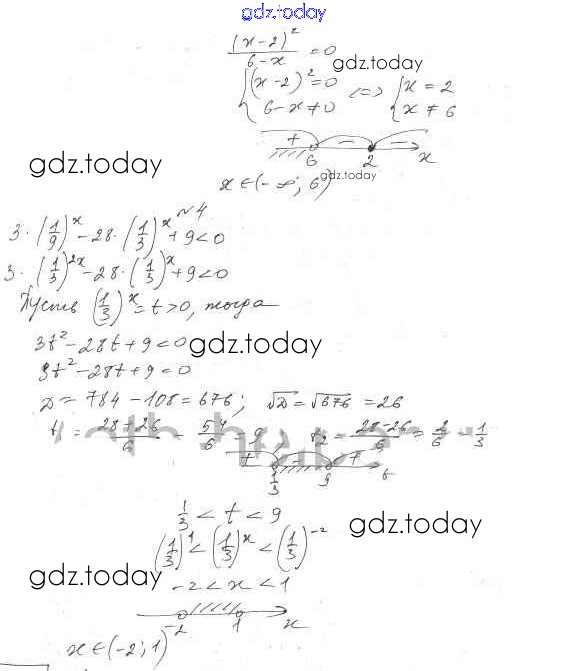 gdz.today
(x-2)²/(6-x) = 0
gdz.today
{(x-2)²=0 <=> {x=2
{6-x≠0 {x≠6
+ - -
6 2 x
gdz.today
gdz.today
x∈(-∞; 6)
№4
3·(1/9)^x - 28·(1/3)^x + 9<0
3·(1/3)^2x - 28·(1/3)^x + 9<0
Пусть (1/3)^x = t>0, тогда
3t²-28t+9<0
gdz.today
3t²-28t+9=0
D=784-108=676; √D=√676=26
t₁ = (28+26)/6 = 54/6 = 9; t₂ = (28-26)/6 = 2/6 = 1/3
+ - +
1/3 9 t
1/3 < t < 9
gdz.today
(1/3)^1 < (1/3)^x < (1/3)^-2
gdz.today
-2<x<1
-2 1 x
x∈(-2; 1)